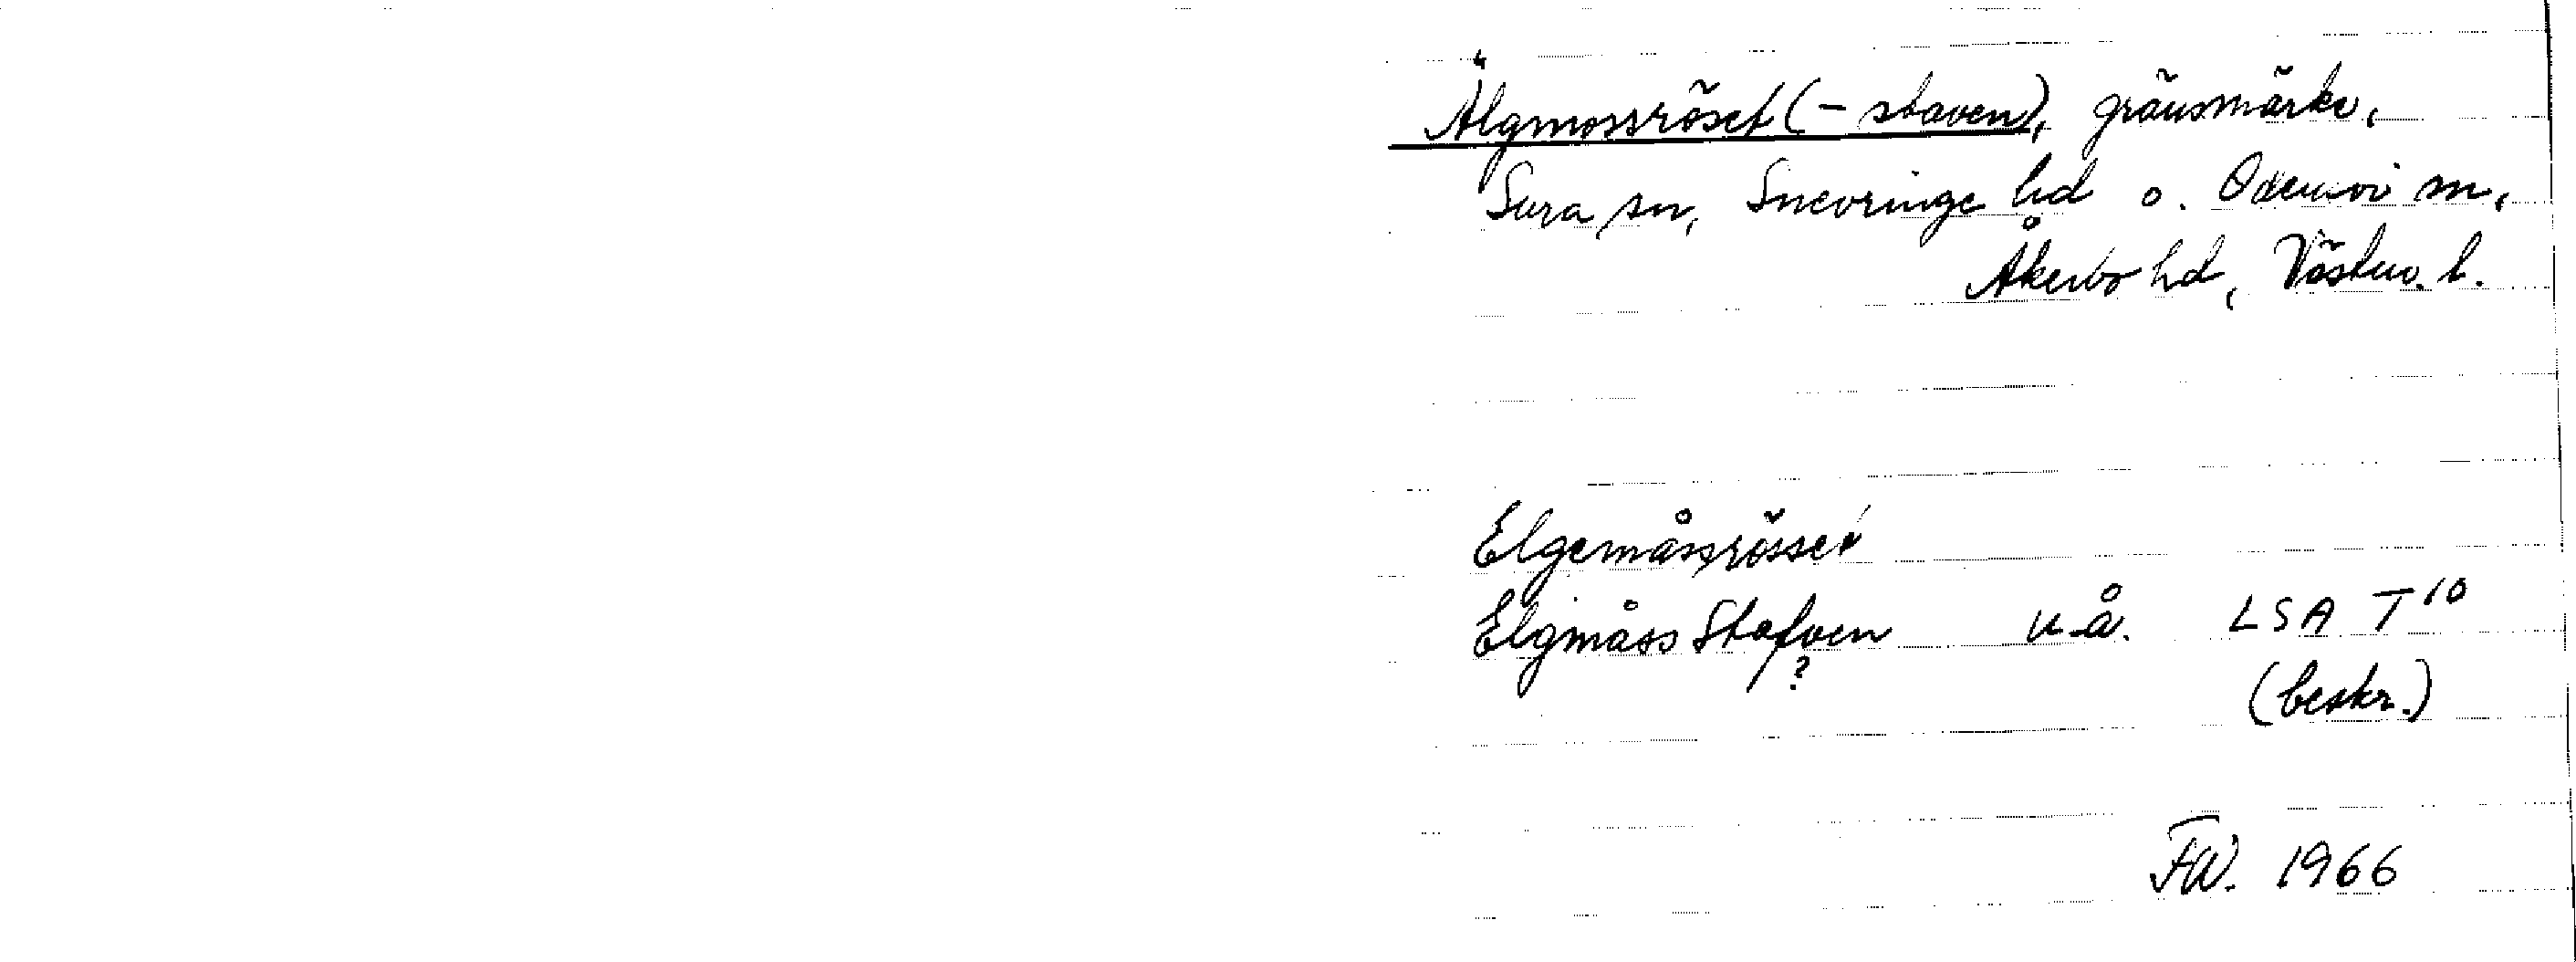 Älgmossröset (-staven), gränsmärke,
Sura sn, Snevringe hd o. Odensvi sn,
Åkerbo hd, Västm. l.
Elgemåssrösset
Elgmåss Stafven u.å. LSA T10
?
(beskr.)
FW. 1966